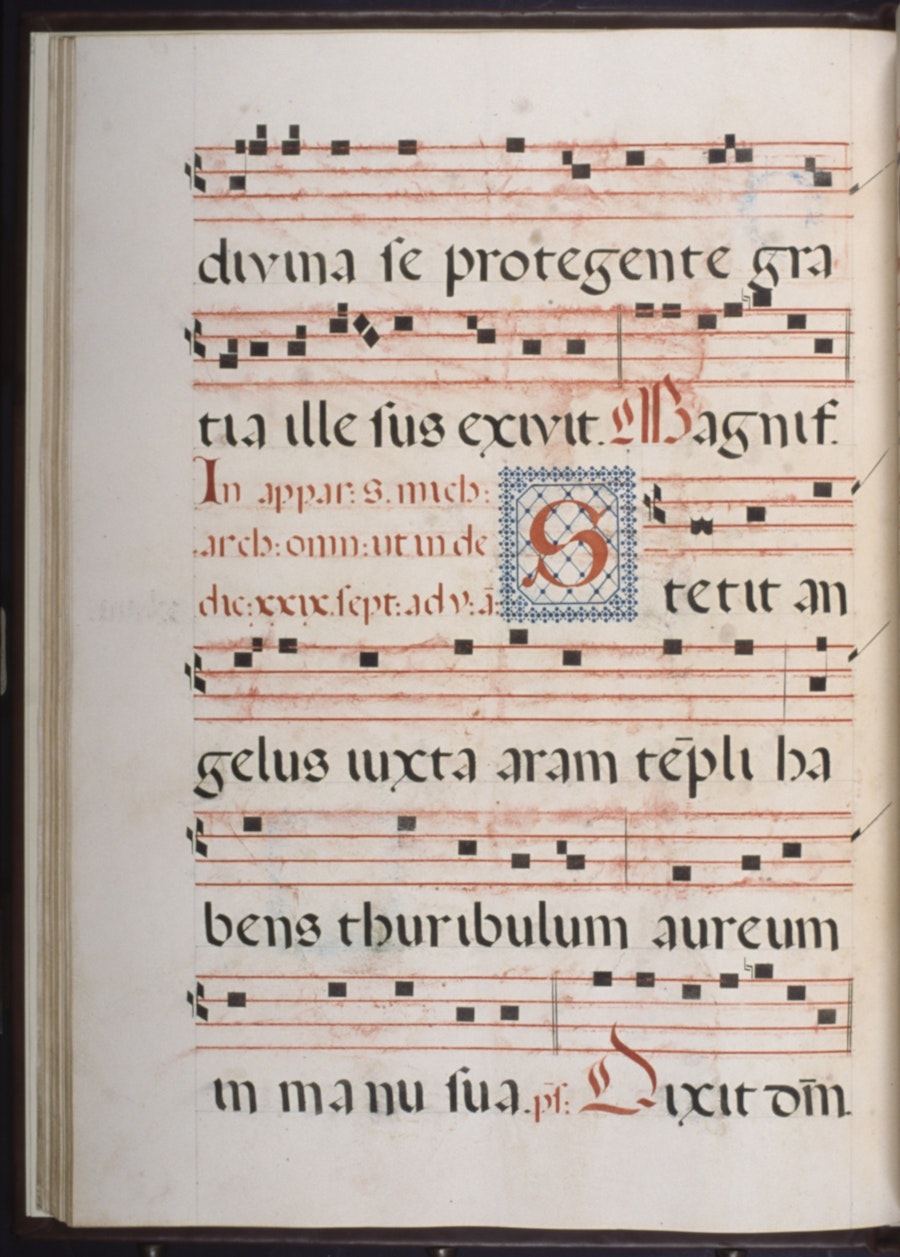 divina se protegente gra
tia ille sus exivit. Magnif.
In appar: S. mich:
arch: omn: ut in de
dic: xxix. sept: ad v: ā:
Stetit an
gelus iuxta aram tēpli ha
bens thuribulum aureum
in manu sua. ps: Dixit dōm̄.